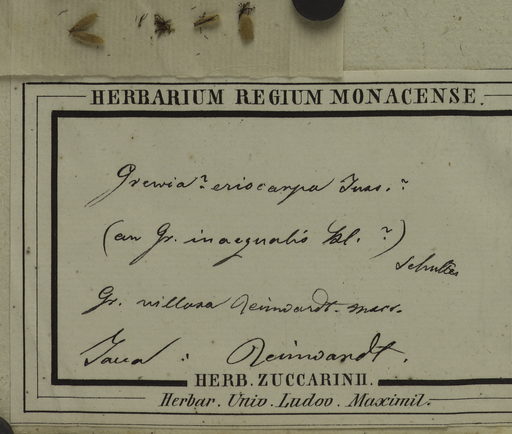 HERBARIUM REGIUM MONACENSE.
Grewia? eriocarpa Juss.?
(an Gr. inaequalis Bl.?)
Schultes
Gr. villosa Reinwardt. mscr.
Java: Reinwardt.
HERB. ZUCCARINII.
Herbar. Univ. Ludov. Maximil.